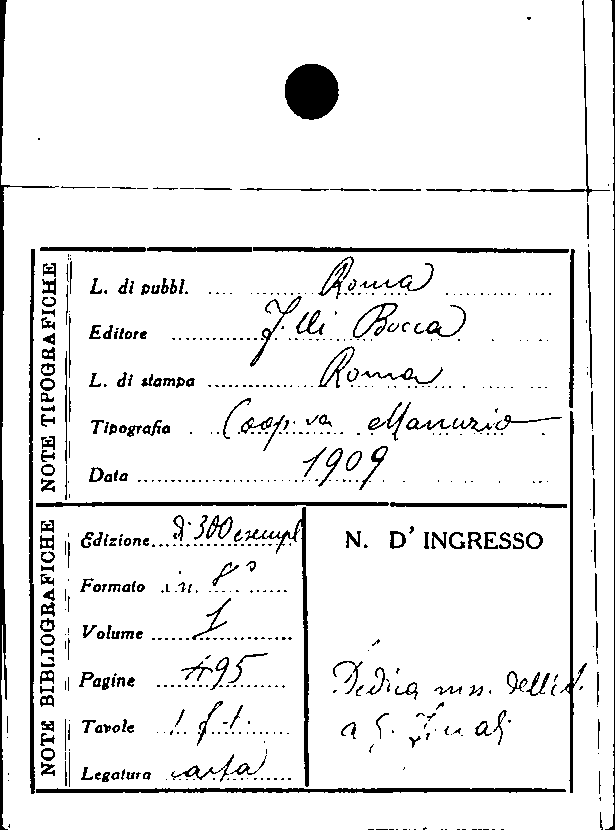 NOTE TIPOGRAFICHE
L. di pubbl. Roma
Editore F.lli Bocca
L. di stampa Roma
Tipografia Coop.va Manuzio
Data 1909
NOTE BIBLIOGRAFICHE
Edizione di 300 esempl
Formato in 8°
Volume 1
Pagine 495
Tavole 1 f.t.
Legatura carta
N. D' INGRESSO
Dedica ms. dell'
a G.